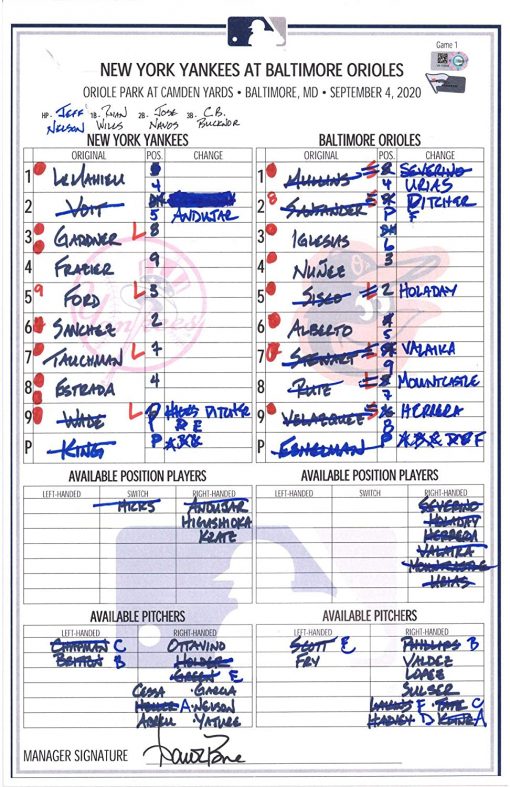 Game 1
NEW YORK YANKEES AT BALTIMORE ORIOLES
ORIOLE PARK AT CAMDEN YARDS • BALTIMORE, MD • SEPTEMBER 4, 2020
HP- JEFF NELSON 1B- RYAN WILLS 2B- JOSE NAVAS 3B- C.B. BUCKNOR
NEW YORK YANKEES
ORIGINAL POS. CHANGE
1 LEMAHIEU 4
2 VOIT DH 5 ANDUJAR
3 GARDNER L 8
4 FRAZIER 9
5 9 FORD L 3
6 SANCHEZ 2
7 TAUCHMAN L 7
8 ESTRADA 4
9 WADE L HICKS PITCHER
P KING P
BALTIMORE ORIOLES
ORIGINAL POS. CHANGE
1 MULLINS SEVERINO URIAS
2 8 SANTANDER P PITCHER F
3 IGLESIAS DH 6
4 NUÑEZ 3
5 SISCO 2 HOLADAY
6 ALBERTO 5
7 STEWART 9 VALAIKA
8 RUIZ 7 MOUNTCASTLE
9 VELAZQUEZ 8 HERRERA
P ESHELMAN P
AVAILABLE POSITION PLAYERS
LEFT-HANDED SWITCH RIGHT-HANDED
HICKS ANDUJAR
HIGASHIOKA
KRATZ
AVAILABLE POSITION PLAYERS
LEFT-HANDED SWITCH RIGHT-HANDED
SEVERINO
HOLADAY
HERRERA
VALAIKA
MOUNTCASTLE
URIAS
AVAILABLE PITCHERS
LEFT-HANDED RIGHT-HANDED
CHAPMAN C OTTAVINO
BRITTON B HOLDER
GREEN E
CESSA · GARCIA
HELLER A · NELSON
ABREU · YAJURE
AVAILABLE PITCHERS
LEFT-HANDED RIGHT-HANDED
SCOTT E PHILLIPS B
FRY VALDEZ
LOPEZ
SULSER
LAKINS F · TATE C
HARVEY D KLINE A
MANAGER SIGNATURE